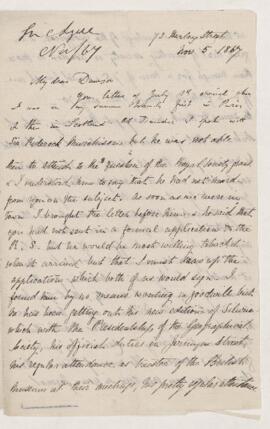 Sir C Lyell
Nov/67
73 Harley Street
Nov. 5. 1867
My dear Dawson
Your letter of July 1st arrived when
I was on my summer Paris
& then in Scotland. At Dundee I spoke with
Sir Roderick Murchison but he was not able
then to attend to the question of the Royal Society fund
& I understood him to say that he had not heard
from you on the subject. As soon as we were in
town I brought the letter before him & he said that
you had not sent in a formal application to the
R. S. but he would be most willing to back it
when it arrived but that I must draw up the
application which both of us would sign. I
found him by no means wanting in goodwill but
he has been getting out his new edition of Siluria
which with the Presidentship of the Geographical
Society, his official duties in Jermyn Street,
his regular attendance as trustee of the British
Museum at their meetings, his pretty regular attendance